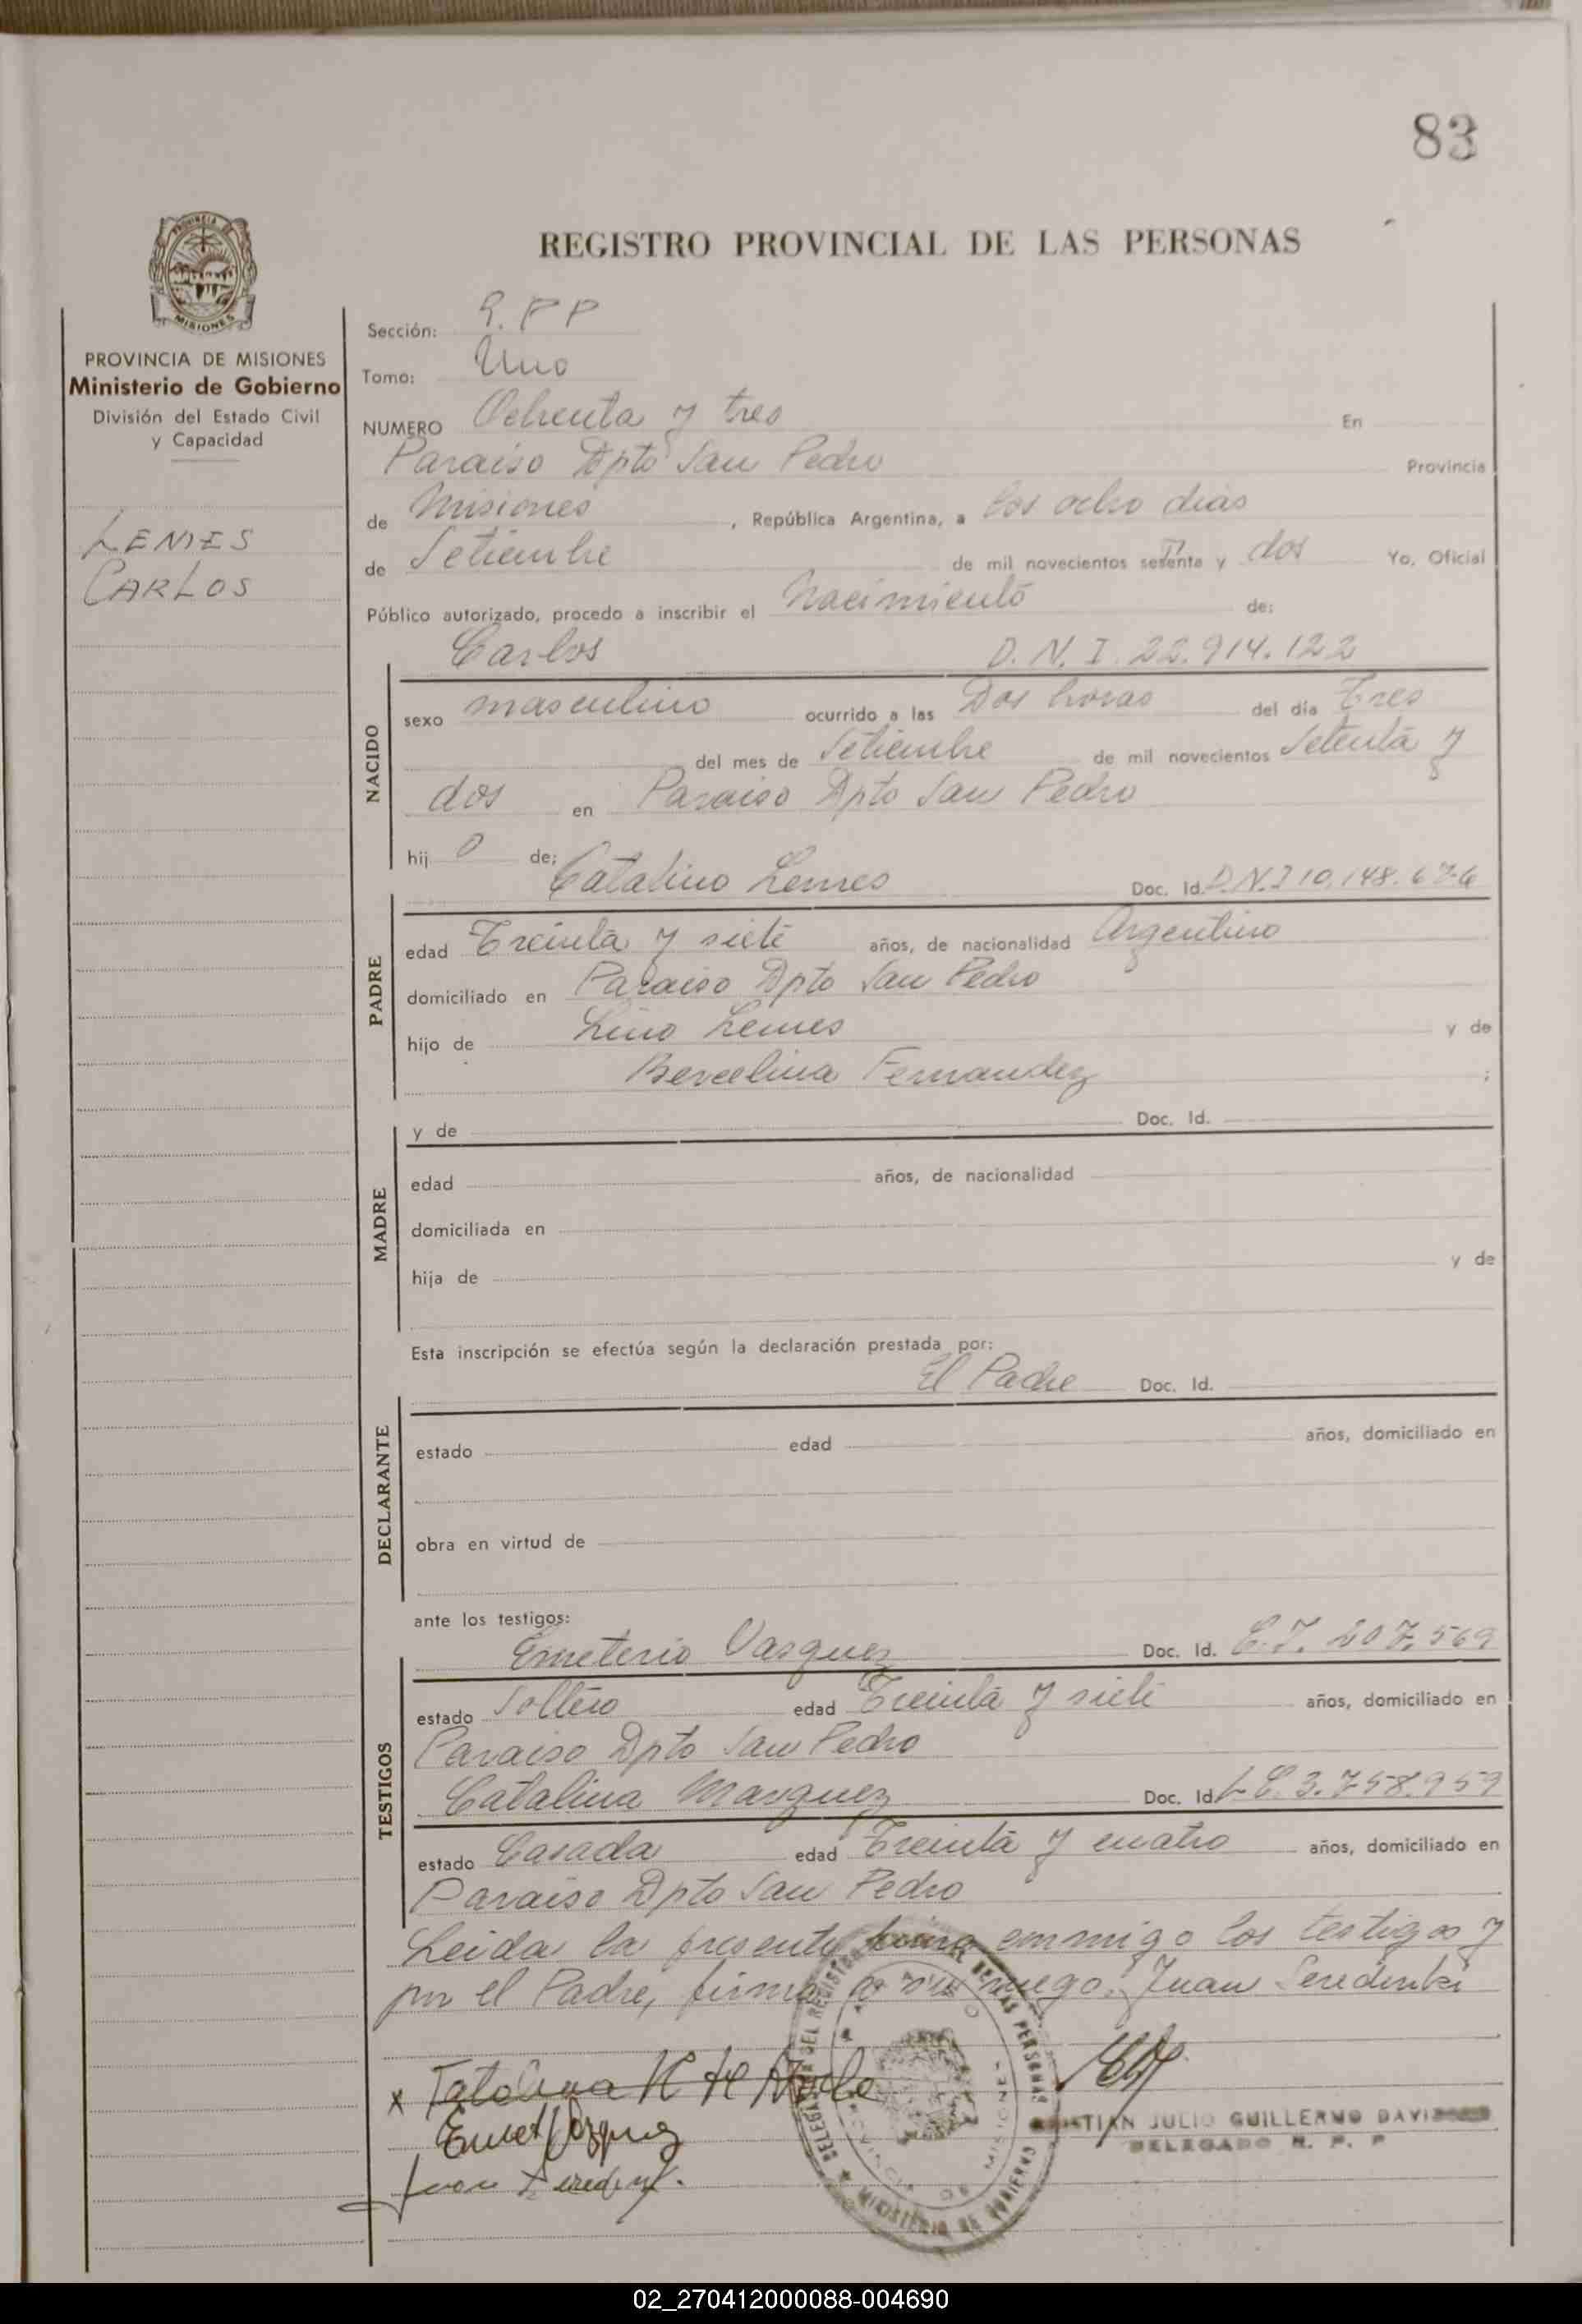 83
REGISTRO PROVINCIAL DE LAS PERSONAS
PROVINCIA DE
MISIONES
PROVINCIA DE MISIONES
Ministerio de Gobierno
División del Estado Civil
y Capacidad
LEMES
CARLOS
Sección: R.P.P
Tomo: Uno
NUMERO Ochenta y tres En
Paraiso Dpto San Pedro Provincia
de Misiones , República Argentina, a los ocho dias
de Setiembre de mil novecientos setenta y dos Yo, Oficial
Público autorizado, procedo a inscribir el Nacimiento de:
Carlos D.N.I. 22.914.122
NACIDO
sexo masculino ocurrido a las Dos horas del día Tres
del mes de Setiembre de mil novecientos Setenta y
dos en Paraiso Dpto San Pedro
hij o de: Catalino Lemes Doc. Id. D.N.I 10.148.676
PADRE
edad Treinta y siete años, de nacionalidad Argentino
domiciliado en Paraiso Dpto San Pedro
hijo de Lino Lemes y de
Bercelina Fernandez ;
MADRE
y de Doc. Id.
edad años, de nacionalidad
domiciliada en
hija de y de
Esta inscripción se efectúa según la declaración prestada por:
El Padre Doc. Id.
DECLARANTE
estado edad años, domiciliado en
obra en virtud de
ante los testigos:
Emeterio Vasquez Doc. Id. C.I. 207.569
TESTIGOS
estado Soltero edad Treinta y siete años, domiciliado en
Paraiso Dpto San Pedro
Catalina Marquez Doc. Id. L.C. 3.758.959
estado Casada edad Treinta y cuatro años, domiciliado en
Paraiso Dpto San Pedro
Leida la presente firma conmigo los testigos y
por el Padre, firma a su ruego. Juan
x
Juan
JULIO GUILLERMO
DELEGADO R. P. P
DEL REGISTRO DE LAS PERSONAS
PROVINCIA DE MISIONES
MINISTERIO DE GOBIERNO
02_270412000088-004690